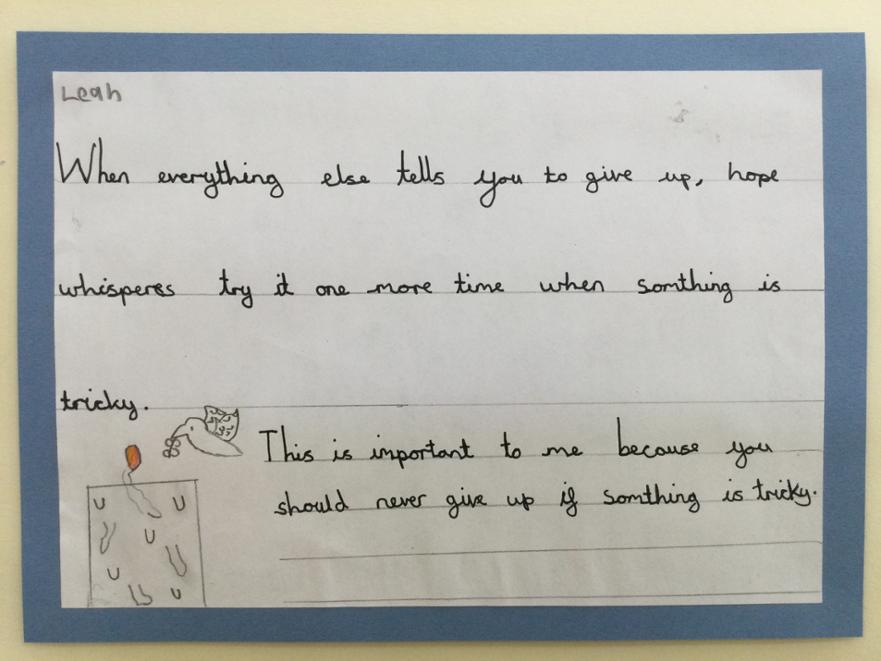 Leah
When everything else tells you to give up, hope
whisperes try it one more time when somthing is
tricky.
This is important to me because you
should never give up if somthing is tricky.